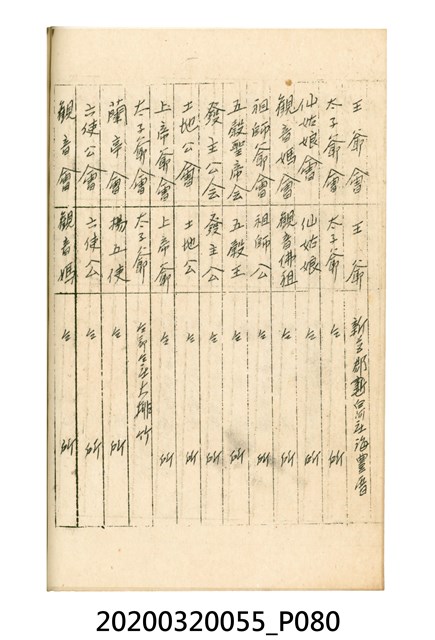 王爺會 王爺 新營郡新營庄海豐厝
太子爺會 太子爺 仝 所
仙姑娘會 仙姑娘 仝 所
觀音媽會 觀音佛祖 仝 所
祖師爺會 祖師公 仝 所
五穀聖帝会 五穀王 仝 所
發主公会 發主公 仝 所
土地公會 土地公 仝 所
上帝爺會 上帝爺 仝 所
太子爺會 太子爺 仝郡仝庄大排竹
蘭亭會 楊五使 仝 所
六使公會 六使公 仝 所
觀音會 觀音媽 仝 所
20200320055_P080